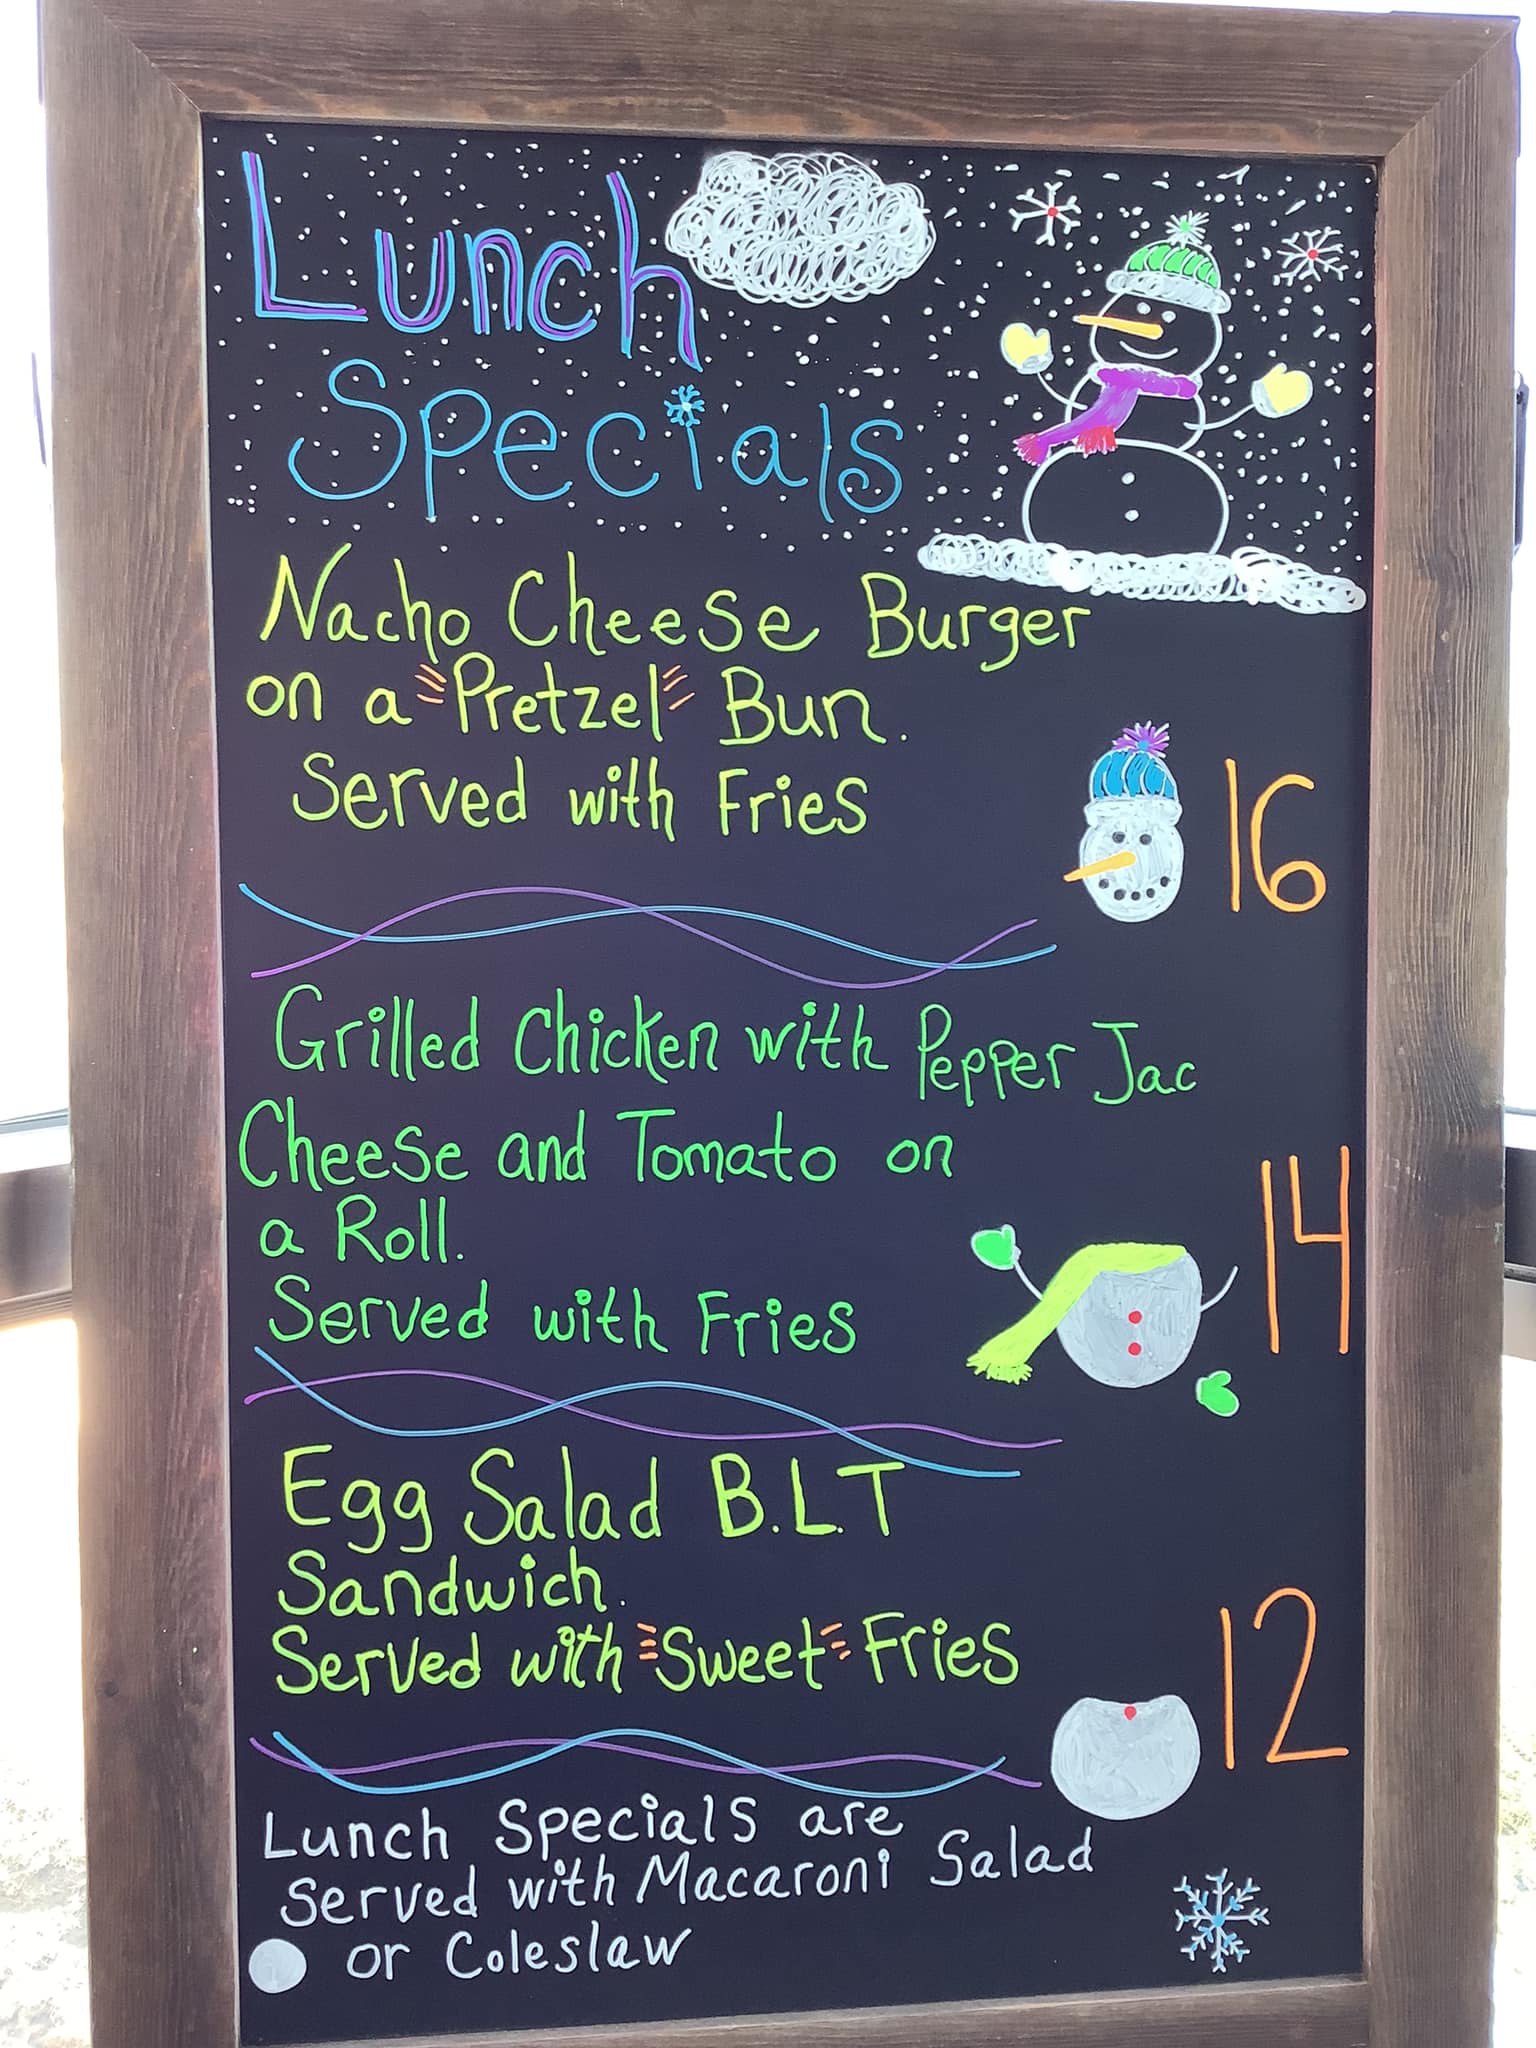 Lunch
Specials
Nacho Cheese Burger
on a "Pretzel" Bun.
Served with Fries
16
Grilled Chicken with Pepper Jac
Cheese and Tomato on
a Roll.
Served with Fries
14
Egg Salad B.L.T
Sandwich.
Served with "Sweet" Fries
12
Lunch Specials are
Served with Macaroni Salad
or Coleslaw